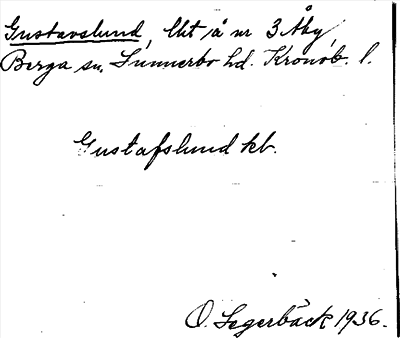 Gustavslund, lht å nr 3 Åby,
Berga sn, Sunnerbo hd. Kronob. l.
Gustafslund kb.
O. Segerbäck 1936.